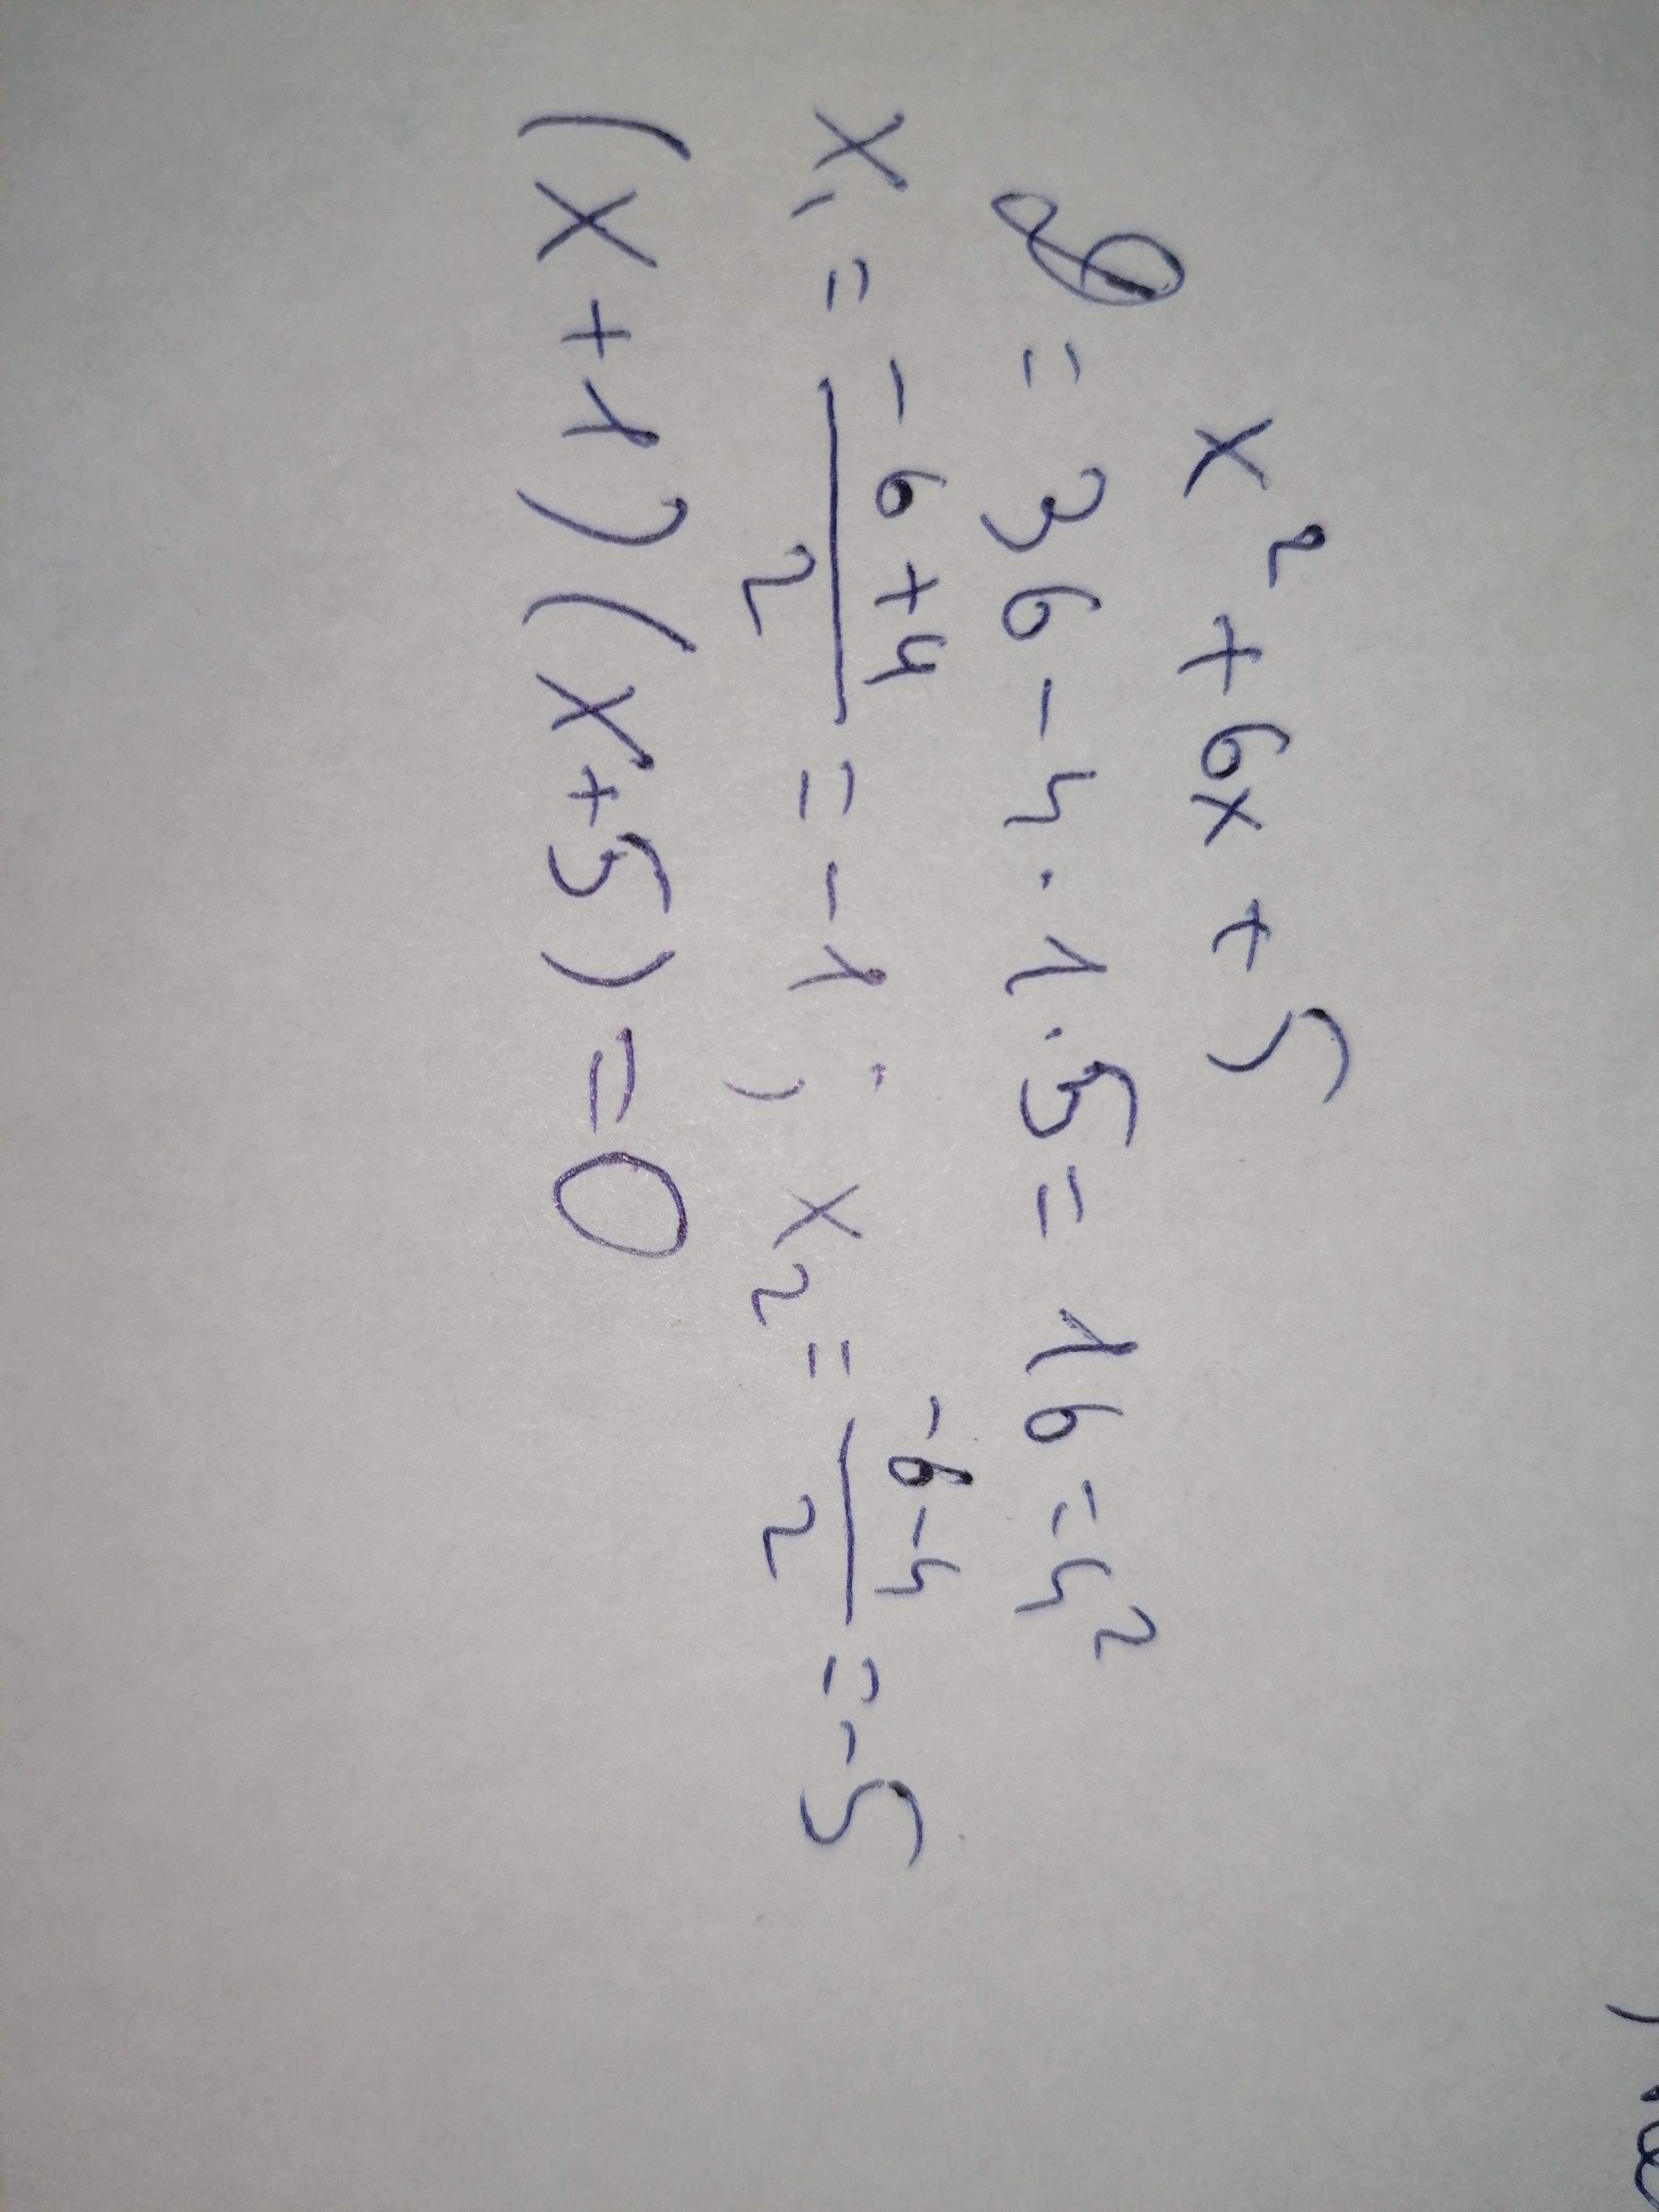 x² + 6x + 5
D = 36 - 4 · 1 · 5 = 16 = 4²
x₁ = (-6+4)/2 = -1 ; x₂ = (-6-4)/2 = -5
(x+1)(x+5) = 0